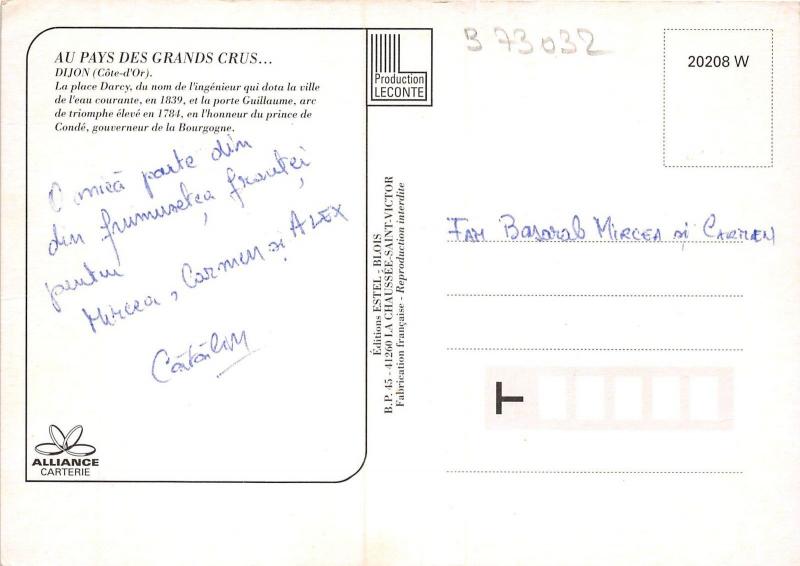 AU PAYS DES GRANDS CRUS...
DIJON (Côte-d'Or).
La place Darcy, du nom de l'ingénieur qui dota la ville
de l'eau courante, en 1839, et la porte Guillaume, arc
de triomphe élevé en 1784, en l'honneur du prince de
Condé, gouverneur de la Bourgogne.
O mică parte din
din frumusețea franței
pentru
Mircea, Carmen și ALEX
Cătălin
ALLIANCE
CARTERIE
Production
LECONTE
Éditions ESTEL - BLOIS
B.P. 45 - 41260 LA CHAUSSÉE-SAINT-VICTOR
Fabrication française - Reproduction interdite
B 73032
20208 W
FAM Basarab MIRCEA și CARMEN
T